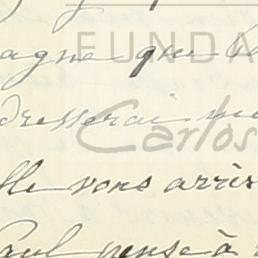 agne que
FUNDA
dresserai
Carlos
lle vous arriv
Paul pense à